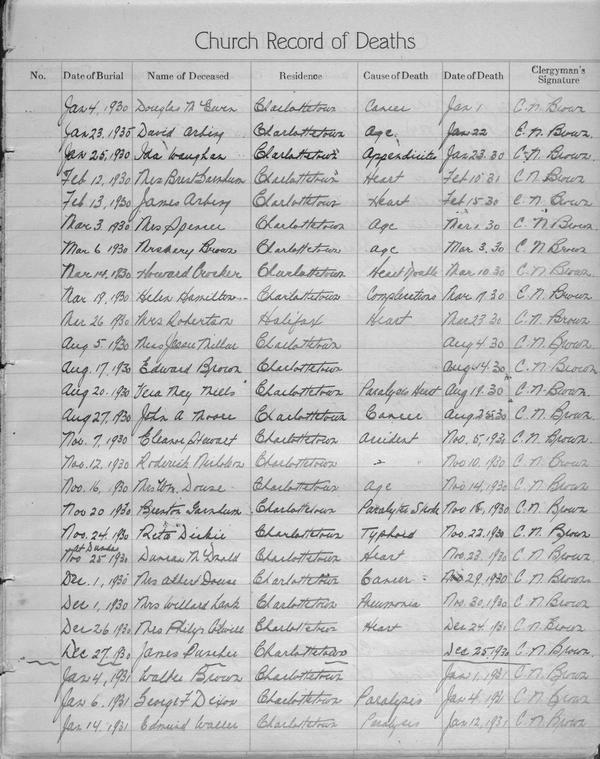 Church Record of Deaths
No. Date of Burial Name of Deceased Residence Cause of Death Date of Death Clergyman's Signature
Jan 4, 1930 Douglas Charlottetown Cancer Jan 1 C. N. Brown
Jan 23, 1935 David Arbing Charlottetown Age Jan 22 C. N. Brown
Jan 25, 1930 Ida Vaughan Charlottetown Appendicites Jan 23. 30 C. N. Brown
Feb 12, 1930 Mrs Charlottetown Heart Feb C. N. Brown
Feb 13, 1930 James Arbing Charlottetown Heart Feb C. N. Brown
Mar 3 1930 Mrs Spencer Charlottetown Age Mar 1. 30 C. N. Brown
Mar 6 1930 Brown Charlottetown age Mar 3. 30 C. N. Brown
Mar 14, 1930 Howard Crocker Charlottetown Heart Mar 10. 30 C. N. Brown
Mar 19, 1930 Helen Hamilton Charlottetown Complications Mar 17. 30 C. N. Brown
Mar 26 1930 Mrs Robertson Halifax Heart Mar 23. 30 C. N. Brown
Aug 5, 1930 Mrs Jessie Millar Charlottetown Aug 4. 30 C. N. Brown
Aug. 17, 1930 Edward Brown Charlottetown Aug 14. 30 C. N. Brown
Aug 20, 1930 Vera May Mills Charlottetown Paralysis Heart Aug 19. 30 C. N. Brown
Aug 27, 1930 John A Moore Charlottetown Cancer Aug 25. 30 C. N. Brown
Nov. 7, 1930 Stewart Charlottetown accident Nov. 5, C. N. Brown
Nov. 12, 1930 Roderick Charlottetown Nov 10, 1930 C. N. Brown
Nov. 16, 1930 Mrs Wm. Douse Charlottetown Age Nov 14, 1930 C. N. Brown
Nov 20 1930 Charlottetown Nov 18, 1930 C. N. Brown
Nov. 24, 1930 Reta Dickie Charlottetown Typhoid Nov. 22, 1930 C. N. Brown
Nov 25 1930 Duncan Charlottetown Heart Nov. 23, 1930 C. N. Brown
Dec. 1, 1930 Mrs Albert Douse Charlottetown Cancer Nov 29, 1930 C. N. Brown
Dec 1, 1930 Mrs Willard Charlottetown Pneumonia Nov. 30, 1930 C. N. Brown
Dec 26 1930 Mrs Charlottetown Heart Dec 24, 1931 C. N. Brown
Dec 27, 1930 James Charlottetown Dec 25, 1930 C. N. Brown
Jan 4, 1931 Walter Brown Charlottetown Jan 1, 1931 C. N. Brown
Jan 6, 1931 George F Dixon Charlottetown Paralysis Jan 4, 1931 C. N. Brown
Jan 14, 1931 Edmund Waller Charlottetown Paralysis Jan 12, 1931 C. N. Brown